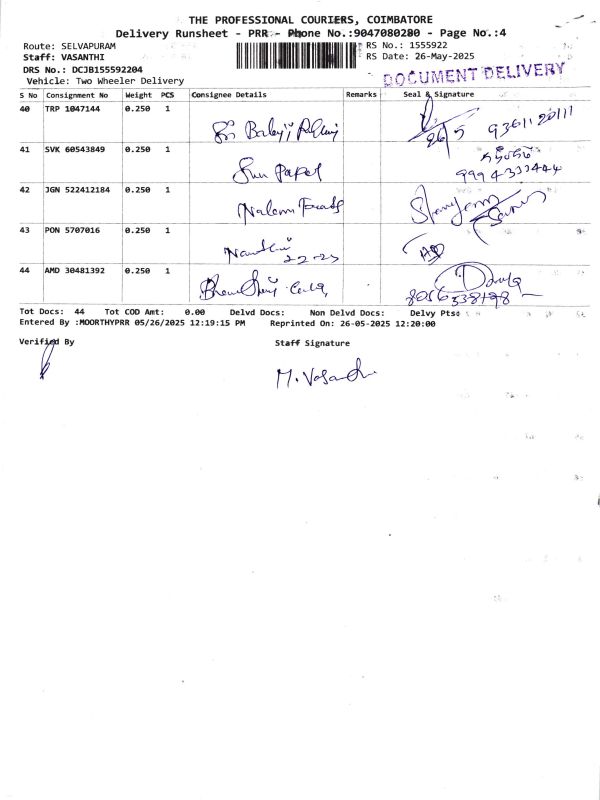 THE PROFESSIONAL COURIERS, COIMBATORE
Delivery Runsheet - PRR - Phone No.:9047080280 - Page No.:4
Route: SELVAPURAM
RS No.: 1555922
Staff: VASANTHI
RS Date: 26-May-2025
DRS No.: DCJB155592204
DOCUMENT DELIVERY
Vehicle: Two Wheeler Delivery
S No Consignment No Weight PCS Consignee Details Remarks Seal & Signature
40 TRP 1047144 0.250 1
Sri Balaji
26/5
41 SVK 60543849 0.250 1
Sun Paper
9994333444
42 JGN 522412184 0.250 1
43 PON 5707016 0.250 1
22-23
44 AMD 30481392 0.250 1
8056338198
Tot Docs: 44 Tot COD Amt: 0.00 Delvd Docs: Non Delvd Docs: Delvy Pts:
Entered By :MOORTHYPRR 05/26/2025 12:19:15 PM Reprinted On: 26-05-2025 12:20:00
Verified By Staff Signature
M. Vasanthi